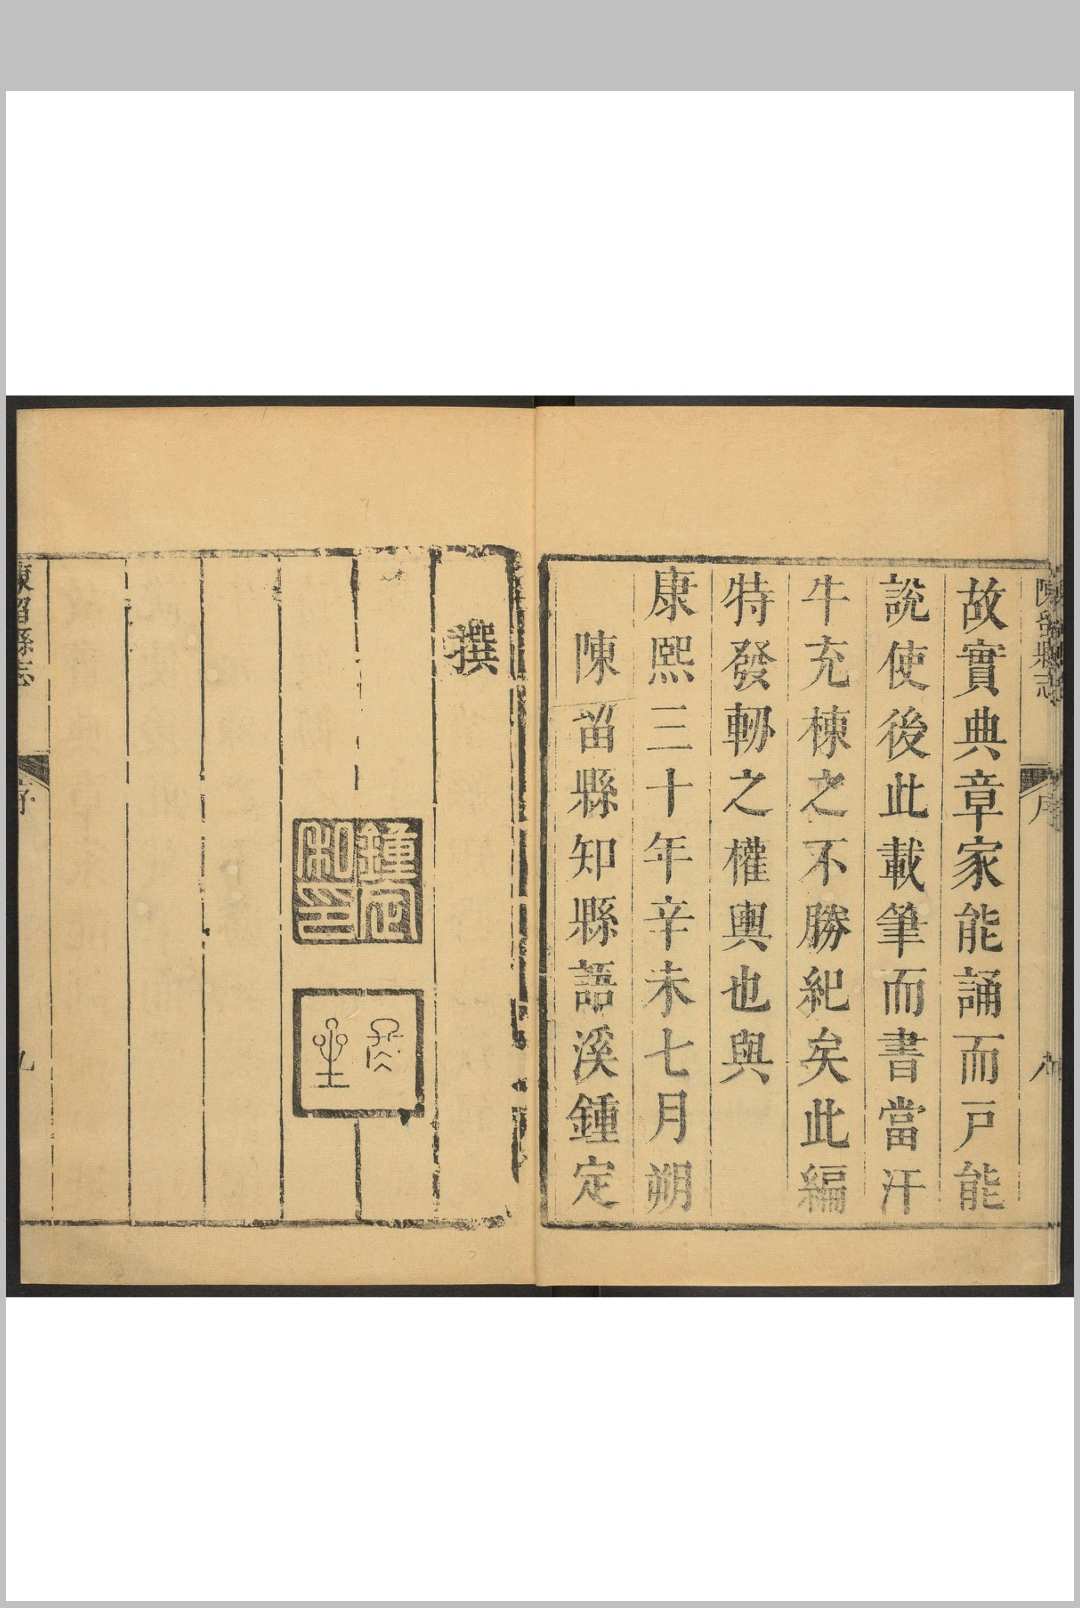 陳留縣志
序
故實典章家能誦而戸能
說使後此載筆而書當汗
牛充棟之不勝紀矣此編
特發軔之權輿也與
康熙三十年辛未七月朔
陳畱縣知縣語溪鍾定
撰
鍾定
陳留縣志
序
九